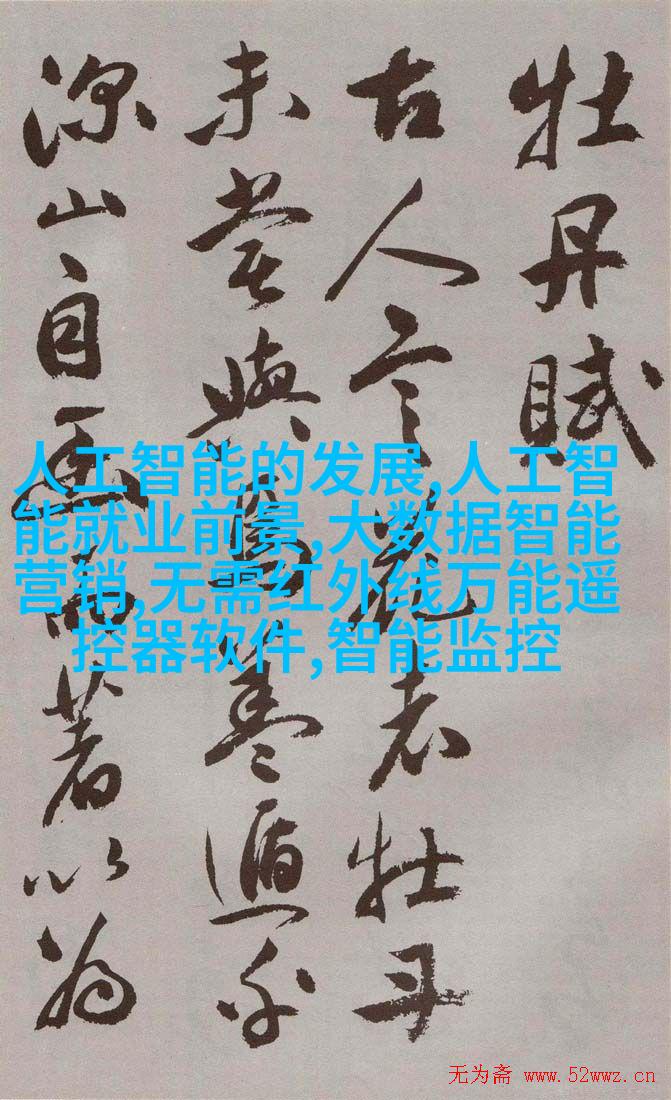 牡丹賦
古人言花者牡丹
未嘗與焉蓋遁乎
深山自幽而著以為
人工智能的发展,人工智
能就业前景,大数据智能
营销,无需红外线万能遥
控器软件,智能监控
无为斋 www.52wwz.cn